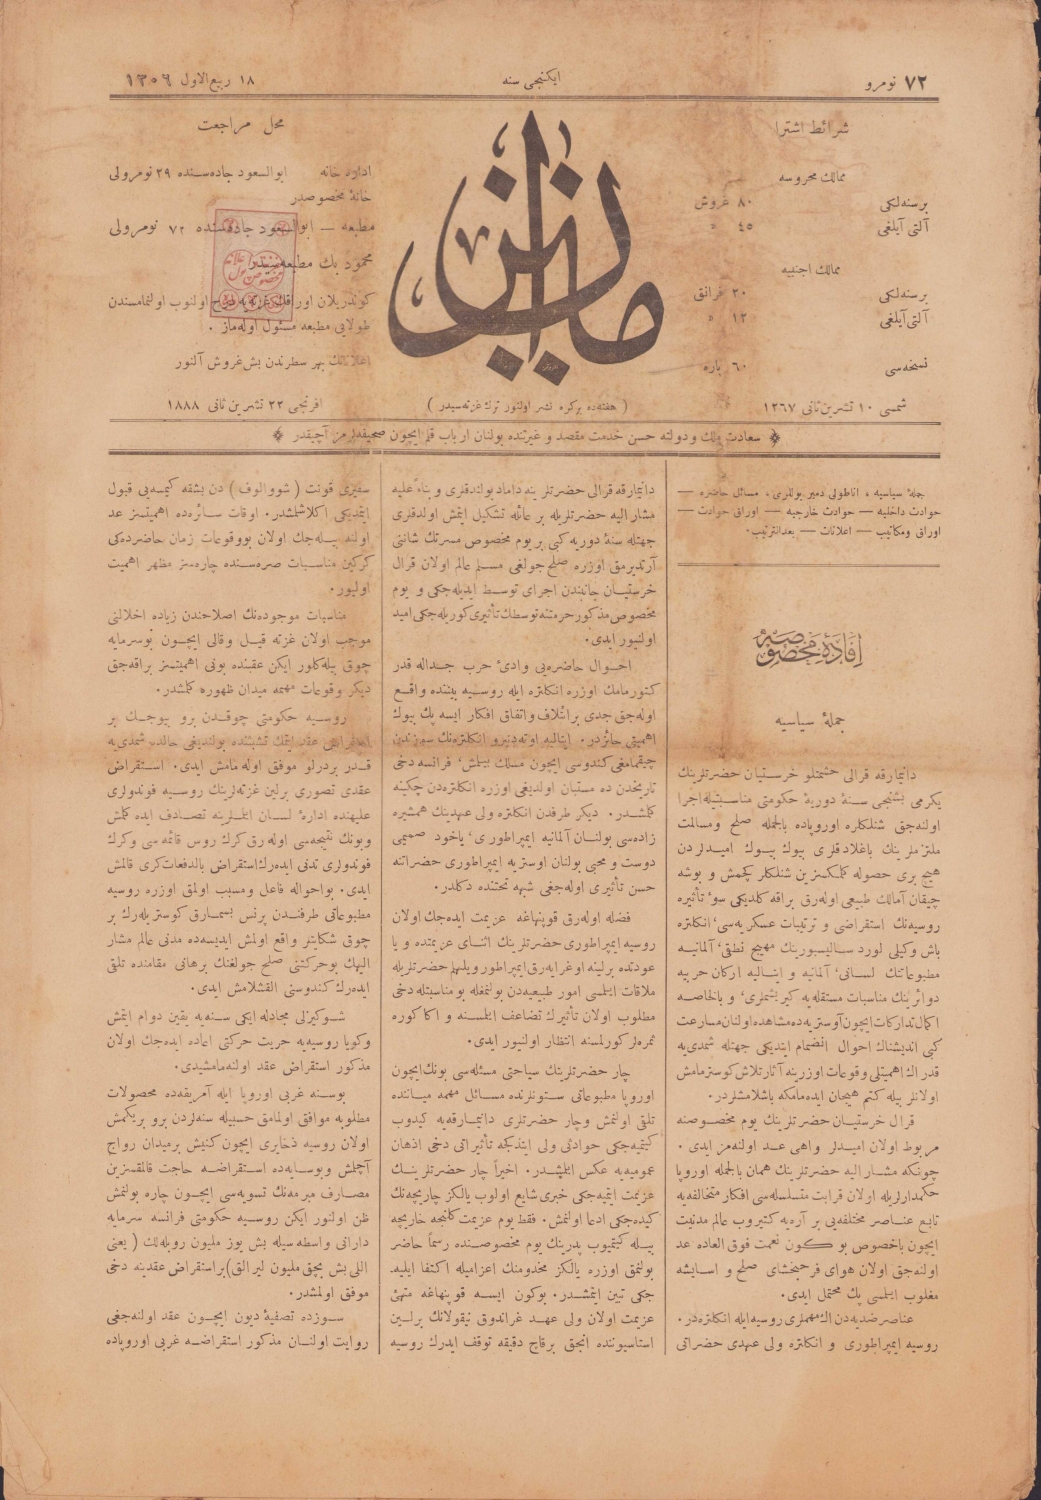 نومرو ٧٢
ایکنجی سنه
١٨ ربیع الاول ١٣٠٦
شرائط اشترا
ممالك محروسه
برسنه‌لكی ٨٠ غروش
آلتی آیلغی ٤٥ »
ممالك اجنبیه
برسنه‌لكی ٢٠ فرانق
آلتی آیلغی ١٢ »
نسخه‌سی ٦٠ پاره
شمسی ١٠ تشرین ثانی ١٢٦٧
میزان
( هفته‌ده بركره نشر اولنور ترك غزته‌سیدر )
محل مراجعت
اداره خانه ابوالسعود جاده‌سنده ٢٩ نومرولی
خانهٔ مخصوصدر
مطبعه — ابوالسعود جاده‌سنده ٧٢ نومرولی
محمود بك مطبعه‌سیدر
كوندریلان اوراق غزته‌یه درج اولنوب اولنمامسندن
طولایی مطبعه مسئول اوله‌ماز .
اعلاناتك بهر سطرندن بش غروش آلنور
افرنجی ٢٢ تشرین ثانی ١٨٨٨
سعادت ملك ودولته حسن خدمت مقصد و غیرتنده بولنان ارباب قلم ایچون صحیفه‌لرمز آچیقدر
جملهٔ سیاسیه ، اناطولی دمیر یوللری ، مسائل حاضره —
حوادث داخلیه — حوادث خارجیه — اوراق حوادث —
اوراق ومكاتیب — اعلانات — بعدالترتیب .
افادهٔ مخصوصه
جملهٔ سیاسیه
دانیمارقه قرالی حشمتلو خرستیان حضرتلرینك
یكرمی بشنجی سنهٔ دوریهٔ حكومتی مناسبتیله اجرا
اولنه‌جق شنلكلره اوروپاده بالجمله صلح ومسالمت
ملتزملرینك باغلادقلری بیوك بیوك امیدلردن
هیچ بری حصوله كلمكسزین شنلكلر كچمش و بوشه
چیقان آمالك طبیعی اوله‌رق براقه كلدیكی سؤ تأثیره
روسیه‌نك استقراضی و ترتیبات عسكریه‌سی، انكلتره
باش وكیلی لورد سالیسبورینك مهیج نطقی، آلمانیه
مطبوعاتنك لسانی، آلمانیه و ایتالیه اركان حربیه
دوائرینك مناسبات مستقله‌یه كیریشملری، و بالخاصه
اكمال تداركات ایچون آوستریه‌ده مشاهده اولنان مسارعت
كبی اندیشناك احوال انضمام ایتدیكی جهتله شمدی‌یه
قدر اك اهمیتلی وقوعات اوزرینه آثار تلاش كوسترمامش
اولانلر بیله كتم هیجان ایده‌مامكه باشلامشلردر.
قرال خرستیان حضرتلرینك یوم مخصوصنه
مربوط اولان امیدلر واهی عد اولنه‌مز ایدی .
چونكه مشار الیه حضرتلرینك همان بالجمله اوروپا
حكمدارلریله اولان قرابت متسلسله‌سی افكار متخالفه‌یه
تابع عناصر مختلفه‌یی بر آره‌یه كتیروب عالم مدنیت
ایچون باخصوص بو كون نعمت فوق العاده عد
اولنه‌جق اولان هوای فرحبخشای صلح و اسایشه
مغلوب ایتلمسی پك محتمل ایدی.
عناصر ضدیه‌دن اك مهملری روسیه ایله انكلتره‌در.
روسیه ایمپراطوری و انكلتره ولی عهدی حضراتی
دانیمارقه قرالی حضرتلرینه داماد بولندقلری و بناءً علیه
مشار الیه حضرتلریله بر عائله تشكیل ایتمش اولدقلری
جهتله سنهٔ دوریه كبی بر یوم مخصوص مسرتك شانی
آرتدیرمق اوزره صلح جولغی مسلم عالم اولان قرال
خرستیان جانبندن اجرای توسط ایدیله‌جكی و یوم
مخصوص مذكور حرمتنه توسطك تأثیری كوریله‌جكی امید
اولنیور ایدی.
احوال حاضره‌یی وادیٔ حرب جداله قدر
كتورمامك اوزره انكلتره ایله روسیه بیننده واقع
اوله‌جق جدی برائتلاف واتفاق افكار ایسه پك بیوك
اهمیتی حائزدر . ایتالیه اوته‌دنبرو انكلتره‌نك سوزندن
چیقمامغی كندوسی ایچون مسلك بیلمش، فرانسه دخی
تاریخدن ده مستبان اولدیغی اوزره انكلتره‌دن چكینه
كلمشدر . دیكر طرفدن انكلتره ولی عهدینك همشیره
زاده‌سی بولنان آلمانیه ایمپراطوری، یاخود صمیمی
دوست و محبی بولنان اوستریه ایمپراطوری حضراتنه
حسن تأثیری اوله‌جغی شبهه تحتنده دكلدر.
فضله اوله‌رق قوپنهاغه عزیمت ایده‌جك اولان
روسیه ایمپراطوری حضرتلرینك اثنای عزیمتده و یا
عودتده برلینه اوغرایه‌رق ایمپراطور ویلهلم حضرتلریله
ملاقات ایتلمسی امور طبیعیه‌دن بولنمغله بو مناسبتله دخی
مطلوب اولان تأثیرك تضاعف ایتلمسنه و اكا كوره
ثمره‌لر كورلمسنه انتظار اولنیور ایدی.
چار حضرتلرینك سیاحتی مسئله‌سی بونك ایچون
اوروپا مطبوعاتی ستونلرنده مسائل مهمه میاننده
تلقی اولنمش وچار حضرتلری دانیمارقه‌یه كیدوب
كیتمیه‌جكی حوادثی ولی ایتدكجه تأثیراتی دخی اذهان
عمومیه‌یه عكس ایتلمشدر. اخیراً چار حضرتلرینك
عزیمت ایتمیه‌جكی خبری شایع اولوب یالكز چاریچه‌نك
كیده‌جكی ادعا اولنمش. فقط یوم عزیمت كلنجه چاریچه
بیله كیتمیوب پدرینك یوم مخصوصنده رسماً حاضر
بولنمق اوزره یالكز مخدومنك اعزامیله اكتفا ایلیه‌
جكی تبین ایتمشدر. بوكون ایسه قوپنهاغه متهیئ
عزیمت اولان ولی عهد غراندوق نیقولانك برلین
استاسیوننده انجق برقاچ دقیقه توقف ایدرك روسیه
سفیری قونت ( شووالوف ) دن بشقه كیمسه‌یی قبول
ایتمدیكی اكلاشلمشدر. اوقات سائره‌ده اهمیتسز عد
اولنه بیله‌جك اولان بووقوعات زمان حاضرده‌كی
كركین مناسبات صره‌سنده چاره‌سز مظهر اهمیت
اولیور.
مناسبات موجوده‌نك اصلاحندن زیاده اخلالنی
موجب اولان غزته قیل وقالی ایچون بوسرمایه
چوق بیله‌كلور ایكن عقبنده بونی اهمیتسز براقه‌جق
دیكر وقوعات مهمه میدان ظهوره كلمشدر.
روسیه حكومتی چوقدن برو بیوجك بر
استقراض عقد ایتمك تشبثنده بولندیغی حالده شمدی‌یه
قدر بردرلو موفق اوله‌مامش ایدی. استقراض
عقدی تصوری برلین غزته‌لرینك روسیه فوندولری
علیهنده اداره لسان ایتلمرینه تصادف ایده كلمش
وبونك نتیجه‌سی اوله‌رق كرك روس قائمه‌سی وكرك
فوندولری تدنی ایده‌رك استقراض بالدفعات كری قالمش
ایدی. بواحواله فاعل ومسبب اولمق اوزره روسیه
مطبوعاتی طرفندن پرنس بیسمارق كوستریله‌رك بر
چوق شكایتلر واقع اولمش ایدیسه‌ده مدنی عالم مشار
الیهك بوحركتنی صلح جولغنك برهانی مقامنده تلقی
ایده‌رك كندوسنی القشلامش ایدی.
شوكیزلی مجادله ایكی سنه‌یه یقین دوام ایتمش
وكویا روسیه‌یه حریت حركتی اعاده ایده‌جك اولان
مذكور استقراض عقد اولنه‌مامشیدی.
بوسنه غربی اوروپا ایله آمریقه‌ده محصولات
مطلوبه موافق اولمامق حسبیله سنه‌لردن برو بریكمش
اولان روسیه ذخایری ایچون كنیش برمیدان رواج
آچلمش وبوسایه‌ده استقراضه حاجت قالمقسزین
مصارف مبرمه‌نك تسویه‌سی ایچون چاره بولنمش
ظن اولنور ایكن روسیه حكومتی فرانسه سرمایه
دارانی واسطه سیله بش یوز ملیون روبله‌لك ( یعنی
اللی بش بچق ملیون لیرالق ) براستقراض عقدینه دخی
موفق اولمشدر.
سوزده تصفیهٔ دیون ایچون عقد اولنه‌جغی
روایت اولنان مذكور استقراضه غربی اوروپاده